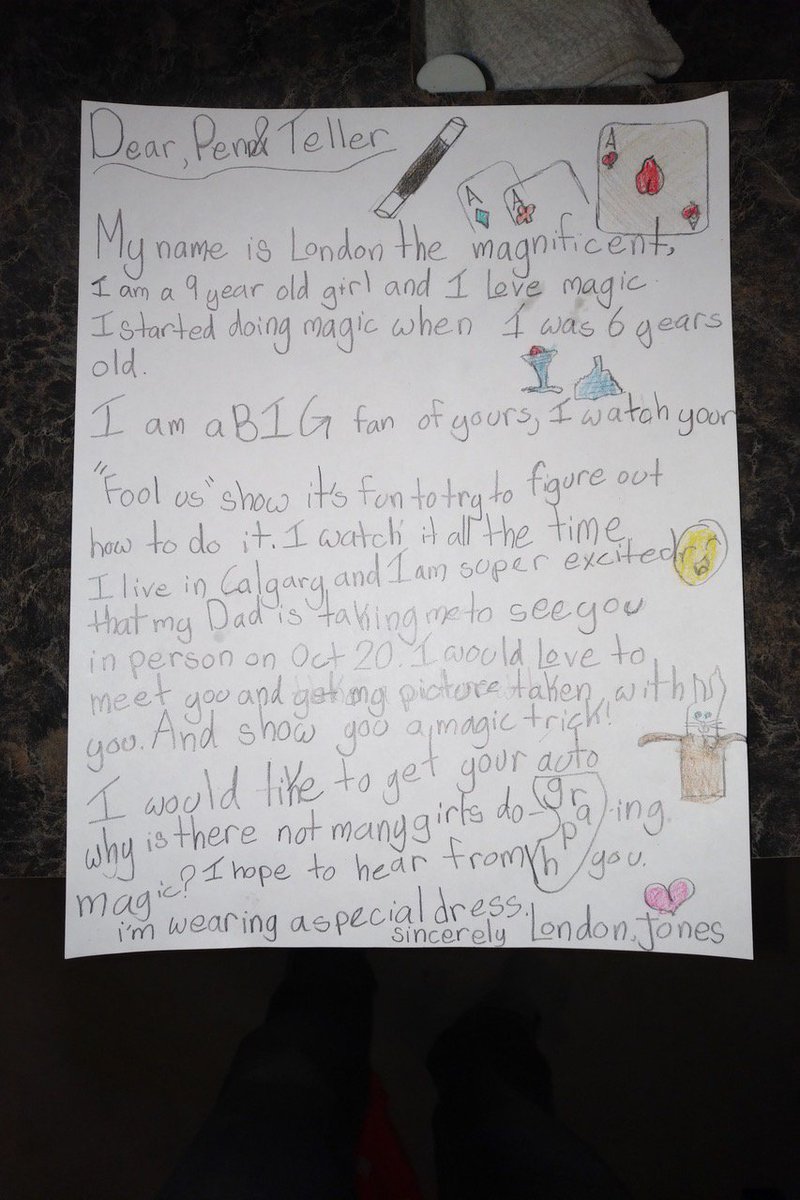 Dear, Pen& Teller
A
A
A
My name is London the magnificent,
I am a 9 year old girl and I Love magic
I started doing magic when I was 6 years
old.
I am a BIG fan of yours, I watch your
"Fool us" show it's fun to try to figure out
how to do it. I watch it all the time
I live in Calgary and I am super excited
that my Dad is taking me to see you
in person on Oct 20. I would Love to
meet you and get my picture taken with
you. And show you a magic trick!
I would like to get your auto
graph
why is there not many girls do-ing
magic? I hope to hear from you.
i'm wearing a special dress.
sincerely London, Jones